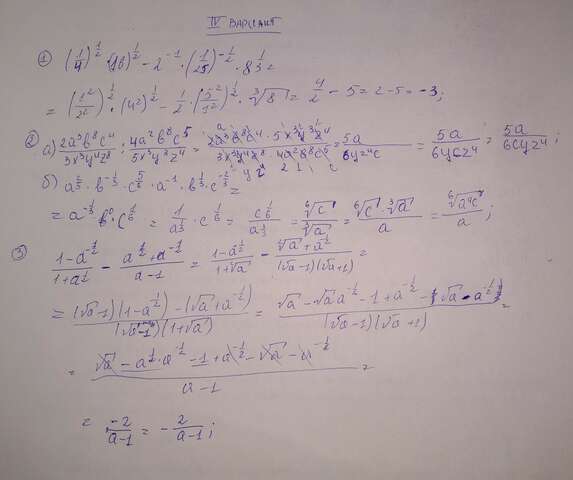 IV ВАРИАНТ
① (1/4)^(1/2) · (16)^(1/2) − 2^(-1) · (1/25)^(-1/2) · 8^(1/3) =
= (1²/2²)^(1/2) · (4²)^(1/2) − 1/2 · (5²/1²)^(1/2) · ∛8 = 4/2 − 5 = 2 − 5 = −3;
② а) 2a³b⁸c⁴ / 3x³y⁴z⁸ : 4a²b⁸c⁵ / 5x³y³z⁴ = 2a³b⁸c⁴ · 5x³y³z⁴ / 3x³y⁴z⁸ · 4a²b⁸c⁵ = 5a / 6yz⁴c = 5a / 6ycz⁴ = 5a / 6cyz⁴;
б) a^(2/3) · b^(-1/3) · c^(5/6) · a^(-1) · b^(1/3) · c^(-2/3) =
= a^(-1/3) · b⁰ · c^(1/6) = 1/a^(1/3) · c^(1/6) = c^(1/6)/a^(1/3) = ⁶√c / ∛a = ⁶√c · ∛a / a = ⁶√a⁴c / a;
③ (1 − a^(-1/2)) / (1 + a^(1/2)) − (a^(1/2) + a^(-1/2)) / (a − 1) = (1 − a^(-1/2)) / (1 + √a) − (√a + a^(-1/2)) / (√a − 1)(√a + 1) =
= (√a − 1)(1 − a^(-1/2)) − (√a + a^(-1/2)) / (√a − 1)(1 + √a) = √a − √a a^(-1/2) − 1 + a^(-1/2) − √a − a^(-1/2) / (√a − 1)(√a + 1) =
= √a − a^(1/2) · a^(-1/2) − 1 + a^(-1/2) − √a − a^(-1/2) / a − 1 =
= −2 / a − 1 = − 2 / a − 1;